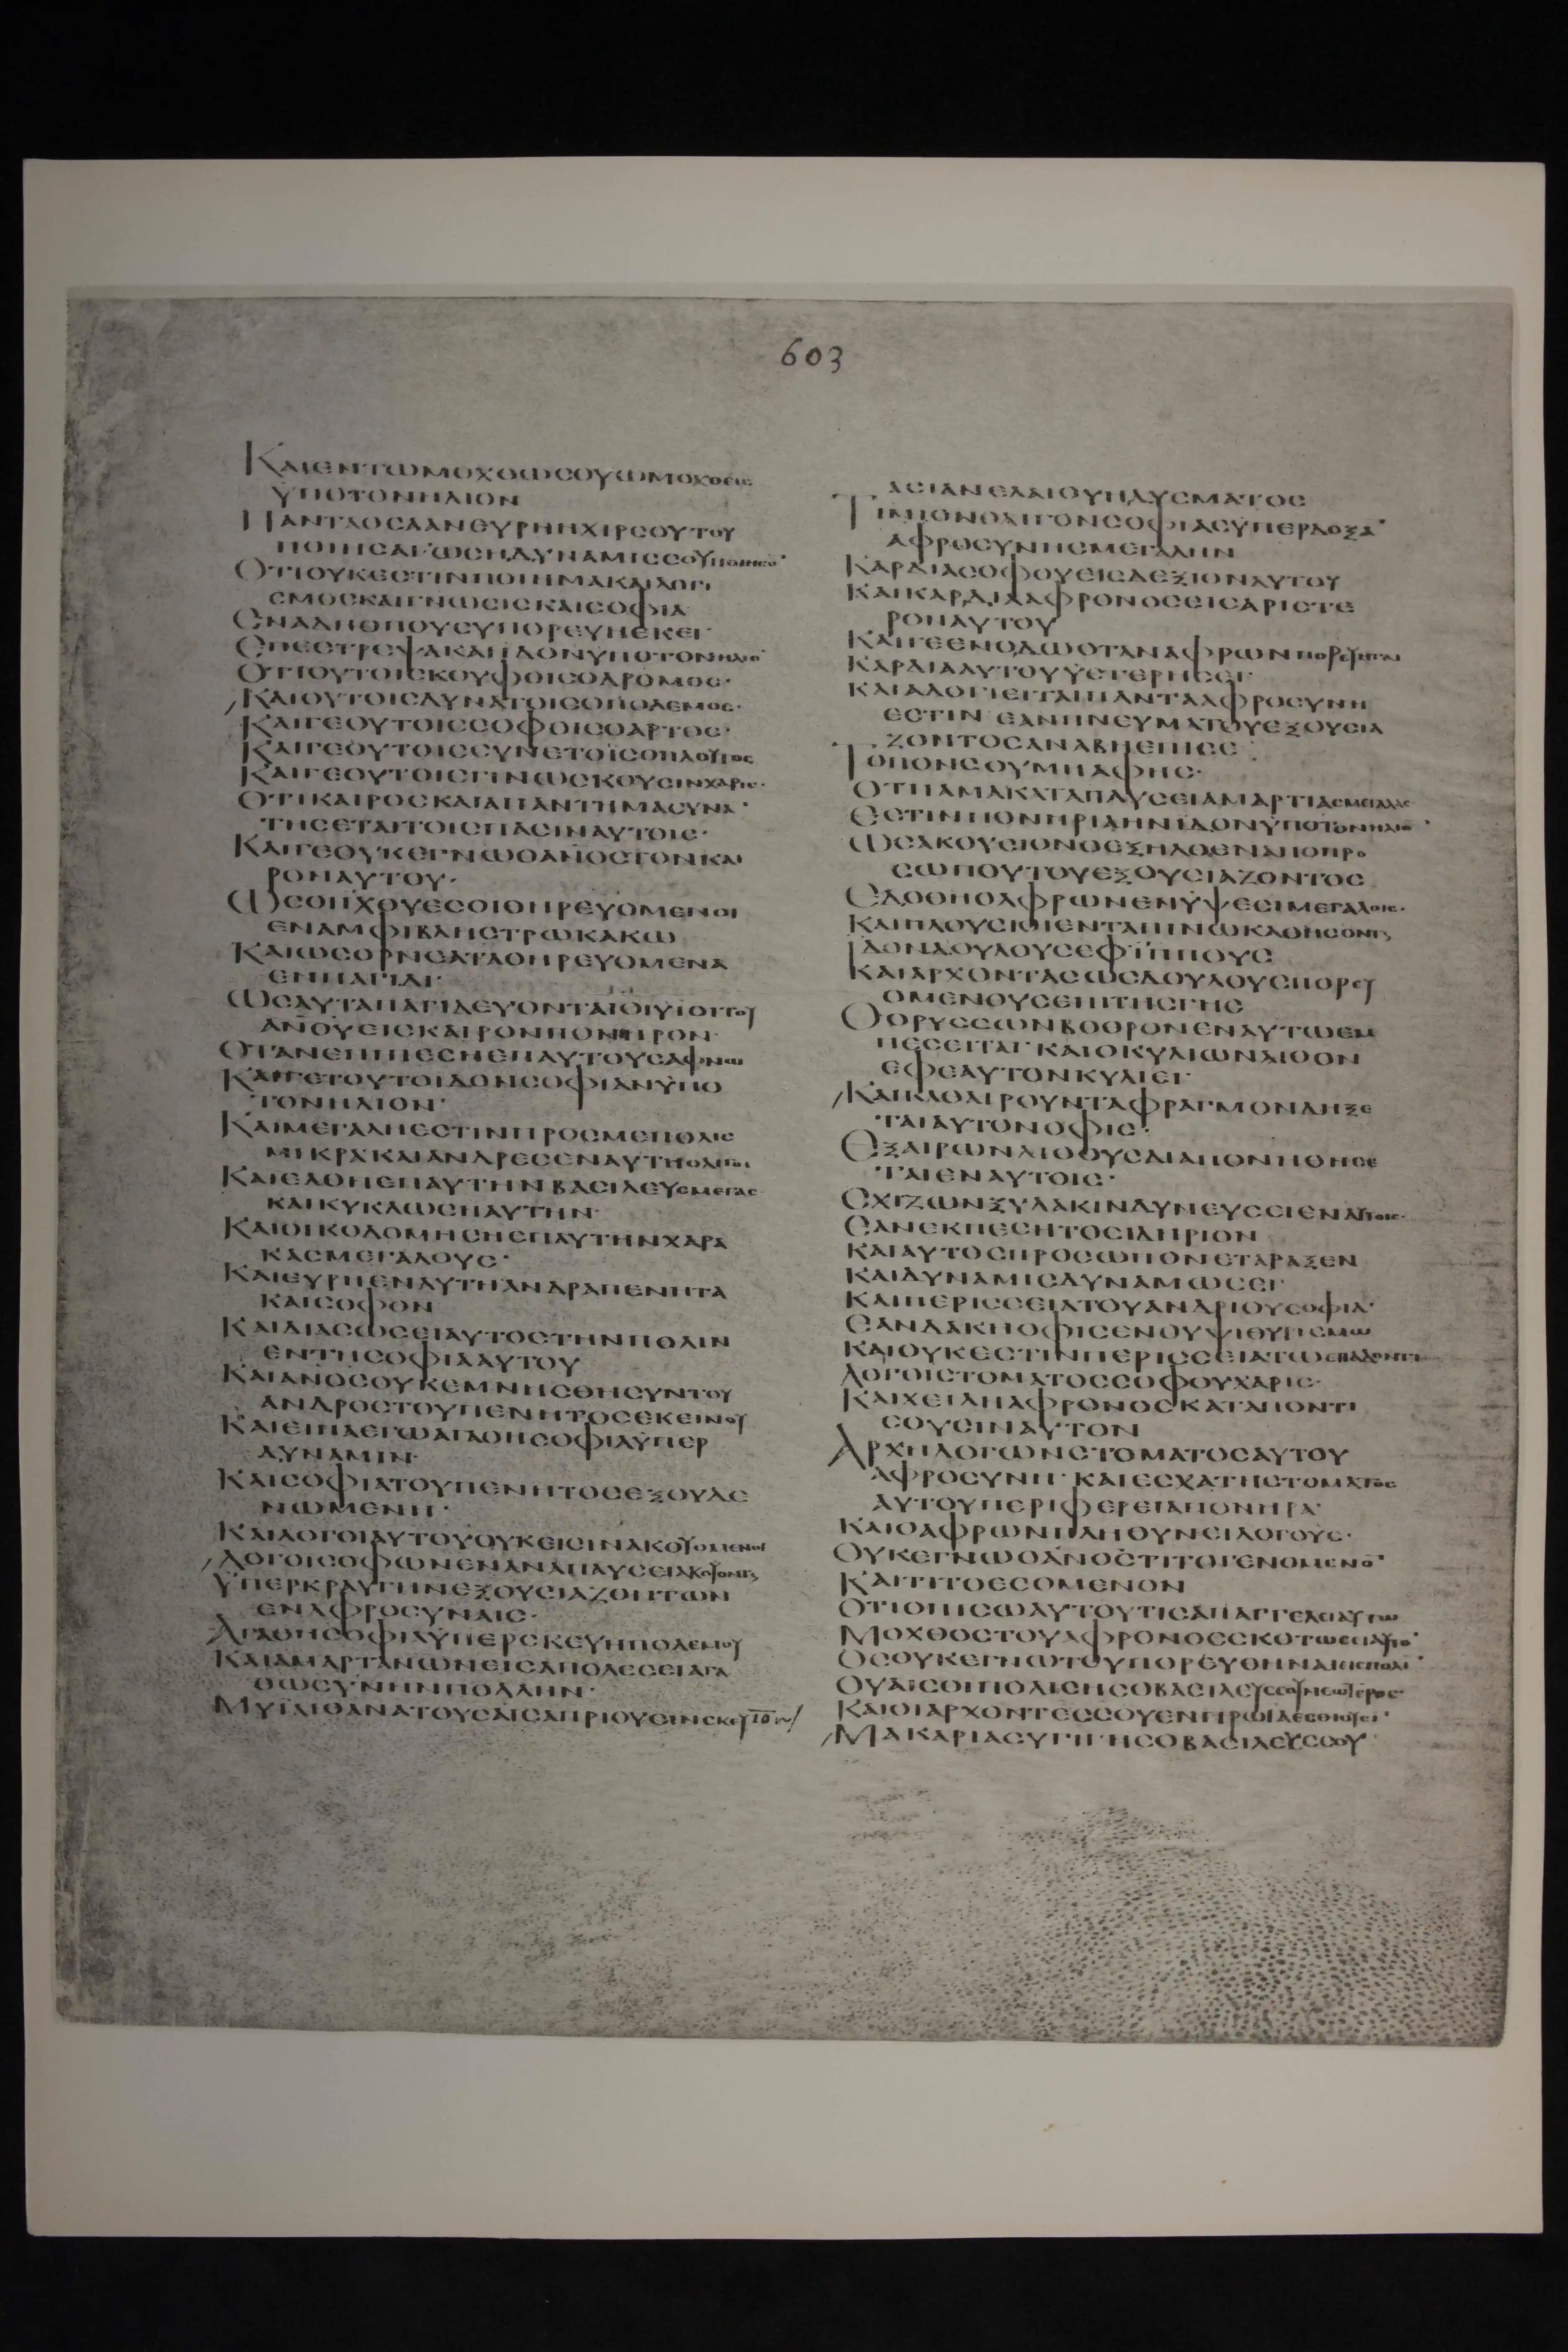 603
ΚΑΙΕΝΤΩΜΟΧΘΩCΟΥΩΜΟΧΘΕΙC
ΫΠΟΤΟΝΗΛΙΟΝ
ΠΑΝΤΑΟCΑΑΝΕΥΡΗΗΧΙΡCΟΥΤΟΥ
ΠΟΙΗCΑΙ·ΩCΗΔΥΝΑΜΙCCΟΥΠΟΙΗCΟ̅
ΟΤΙΟΥΚΕCΤΙΝΠΟΙΗΜΑΚΑΙΛΟΓΙ
CΜΟCΚΑΙΓΝΩCΙCΚΑΙCΟΦΙΑ
ΕΝΑΔΗΟΠΟΥCΥΠΟΡΕΥΗΕΚΕΙ·
ΕΠΕCΤΡΕΨΑΚΑΙΙΔΟΝΫΠΟΤΟΝΗΛΙΟ̅
ΟΤΙΟΥΤΟΙCΚΟΥΦΟΙCΟΔΡΟΜΟC·
ΚΑΙΟΥΤΟΙCΔΥΝΑΤΟΙCΟΠΟΛΕΜΟC·
ΚΑΙΓΕΟΥΤΟΙCCΟΦΟΙCΟΑΡΤΟC·
ΚΑΙΓΕΟΥΤΟΙCCΥΝΕΤΟΙCΟΠΛΟΥΤΟC
ΚΑΙΓΕΟΥΤΟΙCΓΙΝΩCΚΟΥCΙΝΧΑΡΙC·
ΟΤΙΚΑΙΡΟCΚΑΙΑΠΑΝΤΗΜΑCΥΝΑ̅
ΤΗCΕΤΑΙΤΟΙCΠΑCΙΝΑΥΤΟΙC·
ΚΑΙΓΕΟΥΚΕΓΝΩΟΑΝ̅ΟCΤΟΝΚΑΙ
ΡΟΝΑΥΤΟΥ·
ΩCΟΙΙΧΘΥΕCΟΙΘΗΡΕΥΟΜΕΝΟΙ
ΕΝΑΜΦΙΒΛΗCΤΡΩΚΑΚΩ
ΚΑΙΩCΟΡΝΕΑΤΑΘΗΡΕΥΟΜΕΝΑ
ΕΝΠΑΓΙΔΙ·
ΩCΑΥΤΑΠΑΓΙΔΕΥΟΝΤΑΙΟΙΫΙΟΙΤΟΥ
ΑΝ̅ΟΥΕΙCΚΑΙΡΟΝΠΟΝΗΡΟΝ·
ΟΤΑΝΕΠΙΠΕCΗΕΠΑΥΤΟΥCΑΦΝΩ
ΚΑΙΓΕΤΟΥΤΟΙΔΟΝCΟΦΙΑΝΫΠΟ
ΤΟΝΗΛΙΟΝ·
ΚΑΙΜΕΓΑΛΗΕCΤΙΝΠΡΟCΜΕΠΟΛΙC
ΜΙΚΡΑΚΑΙΑΝΔΡΕCΕΝΑΥΤΗΟΛΙΓΟΙ
ΚΑΙΕΛΘΗΕΠΑΥΤΗΝΒΑCΙΛΕΥCΜΕΓΑC
ΚΑΙΚΥΚΛΩCΗΑΥΤΗΝ·
ΚΑΙΟΙΚΟΔΟΜΗCΗΕΠΑΥΤΗΝΧΑΡΑ
ΚΑCΜΕΓΑΛΟΥC·
ΚΑΙΕΥΡΗΕΝΑΥΤΗΑΝΔΡΑΠΕΝΗΤΑ
ΚΑΙCΟΦΟΝ
ΚΑΙΔΙΑCΩCΕΙΑΥΤΟCΤΗΝΠΟΛΙΝ
ΕΝΤΗCΟΦΙΑΑΥΤΟΥ
ΚΑΙΑΝ̅ΟCΟΥΚΕΜΝΗCΘΗCΥΝΤΟΥ
ΑΝΔΡΟCΤΟΥΠΕΝΗΤΟCΕΚΕΙΝΟΥ
ΚΑΙΕΙΠΑΕΓΩΑΓΑΘΗCΟΦΙΑΫΠΕΡ
ΔΥΝΑΜΙΝ·
ΚΑΙCΟΦΙΑΤΟΥΠΕΝΗΤΟCΕΞΟΥΔΕ
ΝΩΜΕΝΗ·
ΚΑΙΛΟΓΟΙΑΥΤΟΥΟΥΚΕΙCΙΝΑΚΟΥΟΜΕΝΟΙ
ΛΟΓΟΙCΟΦΩΝΕΝΑΝΑΠΑΥCΕΙΑΚΟΥΟΝΤΑΙ
ΫΠΕΡΚΡΑΥΓΗΝΕΞΟΥCΙΑΖΟΝΤΩΝ
ΕΝΑΦΡΟCΥΝΑΙC·
ΑΓΑΘΗCΟΦΙΑΫΠΕΡCΚΕΥΗΠΟΛΕΜΟΥ
ΚΑΙΑΜΑΡΤΑΝΩΝΕΙCΑΠΟΛΕCΕΙΑΓΑ
ΘΩCΥΝΗΝΠΟΛΛΗΝ·
ΜΥΙΑΙΘΑΝΑΤΟΥCΑΙCΑΠΡΙΟΥCΙΝCΚΕΥ
ΑCΙΑΝΕΛΑΙΟΥΗΔΥCΜΑΤΟC
ΤΙΜΙΟΝΟΛΙΓΟΝCΟΦΙΑCΫΠΕΡΔΟΞΑ̅
ΑΦΡΟCΥΝΗCΜΕΓΑΛΗΝ
ΚΑΡΔΙΑCΟΦΟΥΕΙCΔΕΞΙΟΝΑΥΤΟΥ
ΚΑΙΚΑΡΔΙΑΑΦΡΟΝΟCΕΙCΑΡΙCΤΕ
ΡΟΝΑΥΤΟΥ
ΚΑΙΓΕΕΝΟΔΩΟΤΑΝΑΦΡΩΝΠΟΡΕΥΗΤΑΙ
ΚΑΡΔΙΑΑΥΤΟΥΫCΤΕΡΗCΕΙ·
ΚΑΙΑΛΟΓΙΕΙΤΑΙΠΑΝΤΑΑΦΡΟCΥΝΗ
ΕCΤΙΝ ΕΑΝΠΝΕΥΜΑΤΟΥΕΞΟΥCΙΑ
ΖΟΝΤΟCΑΝΑΒΗΕΠΙCΕ
ΤΟΠΟΝCΟΥΜΗΑΦΗC·
ΟΤΙΙΑΜΑΚΑΤΑΠΑΥCΕΙΑΜΑΡΤΙΑCΜΕΓΑΛΑC
ΕCΤΙΝΠΟΝΗΡΙΑΗΝΙΔΟΝΫΠΟΤΟΝΗΛΙΟ̅
ΩCΑΚΟΥCΙΟΝΟΕΞΗΛΘΕΝΑΠΟΠΡΟ
CΩΠΟΥΤΟΥΕΞΟΥCΙΑΖΟΝΤΟC
ΕΔΟΘΗΟΑΦΡΩΝΕΝΫΨΕCΙΜΕΓΑΛΟΙC·
ΚΑΙΠΛΟΥCΙΟΙΕΝΤΑΠΙΝΩΚΑΘΗCΟΝΤΑΙ
ΙΔΟΝΔΟΥΛΟΥCΕΦΪΠΠΟΥC
ΚΑΙΑΡΧΟΝΤΑCΩCΔΟΥΛΟΥCΠΟΡΕΥ
ΟΜΕΝΟΥCΕΠΙΤΗCΓΗC
ΟΟΡΥCCΩΝΒΟΘΡΟΝΕΝΑΥΤΩΕΜ
ΠΕCΕΙΤΑΙ·ΚΑΙΟΚΥΛΙΩΝΛΙΘΟΝ
ΕΦΕΑΥΤΟΝΚΥΛΙΕΙ·
ΚΑΙΚΑΘΑΙΡΟΥΝΤΑΦΡΑΓΜΟΝΔΗΞΕ
ΤΑΙΑΥΤΟΝΟΦΙC·
ΕΞΑΙΡΩΝΛΙΘΟΥCΔΙΑΠΟΝΗΘΗCΕ
ΤΑΙΕΝΑΥΤΟΙC·
CΧΙΖΩΝΞΥΛΑΚΙΝΔΥΝΕΥCΕΙΕΝΑΥΤΟΙC·
ΕΑΝΕΚΠΕCΗΤΟCΙΔΗΡΙΟΝ
ΚΑΙΑΥΤΟCΠΡΟCΩΠΟΝΕΤΑΡΑΞΕΝ
ΚΑΙΔΥΝΑΜΙCΔΥΝΑΜΩCΕΙ·
ΚΑΙΠΕΡΙCCΕΙΑΤΟΥΑΝΔΡΙΟΥCΟΦΙΑ·
ΕΑΝΔΑΚΗΟΦΙCΕΝΟΥΨΙΘΥΡΙCΜΩ
ΚΑΙΟΥΚΕCΤΙΝΠΕΡΙCCΕΙΑΤΩΕΠΑΔΟΝΤΙ
ΛΟΓΟΙCΤΟΜΑΤΟCCΟΦΟΥΧΑΡΙC·
ΚΑΙΧΕΙΛΗΑΦΡΟΝΟCΚΑΤΑΠΟΝΤΙ
CΟΥCΙΝΑΥΤΟΝ
ΑΡΧΗΛΟΓΩΝCΤΟΜΑΤΟCΑΥΤΟΥ
ΑΦΡΟCΥΝΗ·ΚΑΙΕCΧΑΤΗCΤΟΜΑΤΟC
ΑΥΤΟΥΠΕΡΙΦΕΡΕΙΑΠΟΝΗΡΑ·
ΚΑΙΟΑΦΡΩΝΠΛΗΘΥΝΕΙΛΟΓΟΥC·
ΟΥΚΕΓΝΩΟΑΝ̅ΟCΤΙΤΟΓΕΝΟΜΕΝΟ̅
ΚΑΙΤΙΤΟΕCΟΜΕΝΟΝ
ΟΤΙΟΠΙCΩΑΥΤΟΥΤΙCΑΠΑΓΓΕΛΕΙΑΥΤΩ
ΜΟΧΘΟCΤΟΥΑΦΡΟΝΟCCΚΟΤΩCΕΙΑΥΤΟ̅
ΟCΟΥΚΕΓΝΩΤΟΥΠΟΡΕΥΘΗΝΑΙΕΙCΠΟΛΙ̅
ΟΥΑΙCΟΙΠΟΛΙCΗCΟΒΑCΙΛΕΥCCΟΥΝΕΩΤΕΡΟC·
ΚΑΙΟΙΑΡΧΟΝΤΕCCΟΥΕΝΠΡΩΙΑΕCΘΙΟΥCΙ·
ΜΑΚΑΡΙΑCΥΓΗΗCΟΒΑCΙΛΕΥCCΟΥ